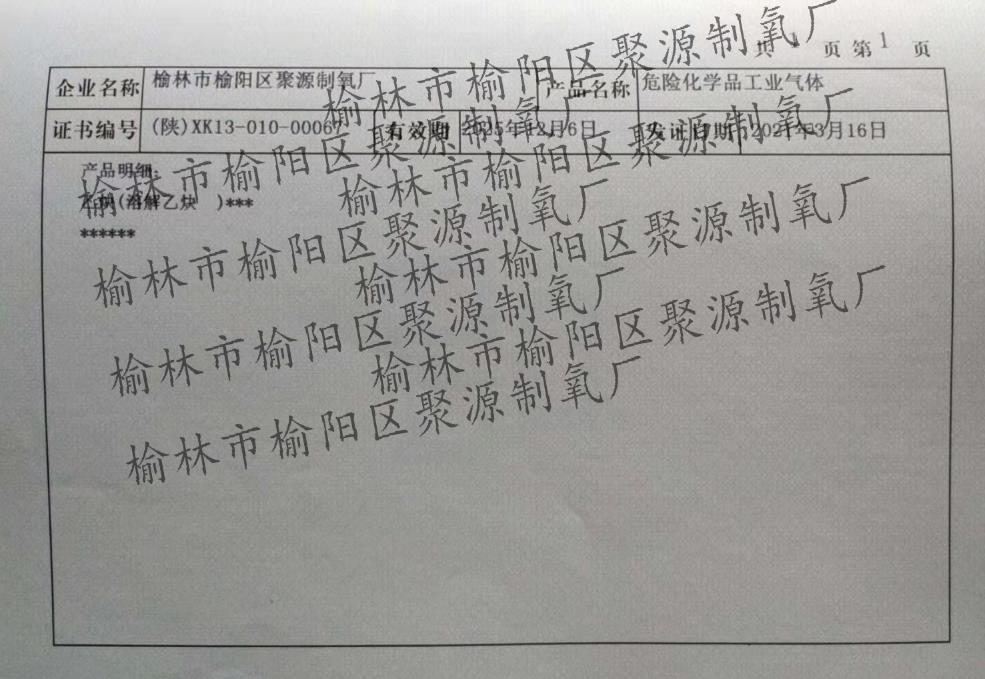 共 1 页 第 1 页
企业名称 榆林市榆阳区聚源制氧厂 产品名称 危险化学品工业气体
证书编号 (陕)XK13-010-00067 有效期 2025年12月6日 发证日期 2021年3月16日
产品明细:
乙炔(溶解乙炔 )***
******
榆林市榆阳区聚源制氧厂
榆林市榆阳区聚源制氧厂
榆林市榆阳区聚源制氧厂
榆林市榆阳区聚源制氧厂
榆林市榆阳区聚源制氧厂
榆林市榆阳区聚源制氧厂
榆林市榆阳区聚源制氧厂
榆林市榆阳区聚源制氧厂